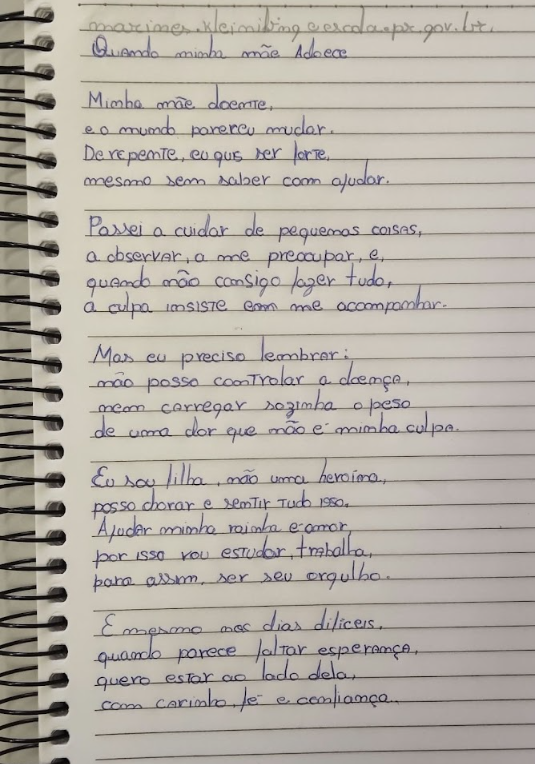 marcimes.kleinibing@escola.pr.gov.br.
Quando minha mãe Adoece
Minha mãe doente,
e o mundo pareceu mudar.
De repente, eu quis ser forte,
mesmo sem saber com ajudar.
Passei a cuidar de pequenas coisas,
a observar, a me preocupar, e,
quando não consigo fazer tudo,
a culpa insiste em me acompanhar.
Mas eu preciso lembrar:
não posso controlar a doença,
nem carregar sozinha o peso
de uma dor que não é minha culpa.
Eu sou filha, não uma heroína,
posso chorar e sentir tudo isso.
Ajudar minha rainha é amor,
por isso vou estudar, trabalha,
para assim, ser seu orgulho.
E mesmo nos dias difíceis,
quando parece faltar esperança,
quero estar ao lado dela,
com carinho, fé e confiança.